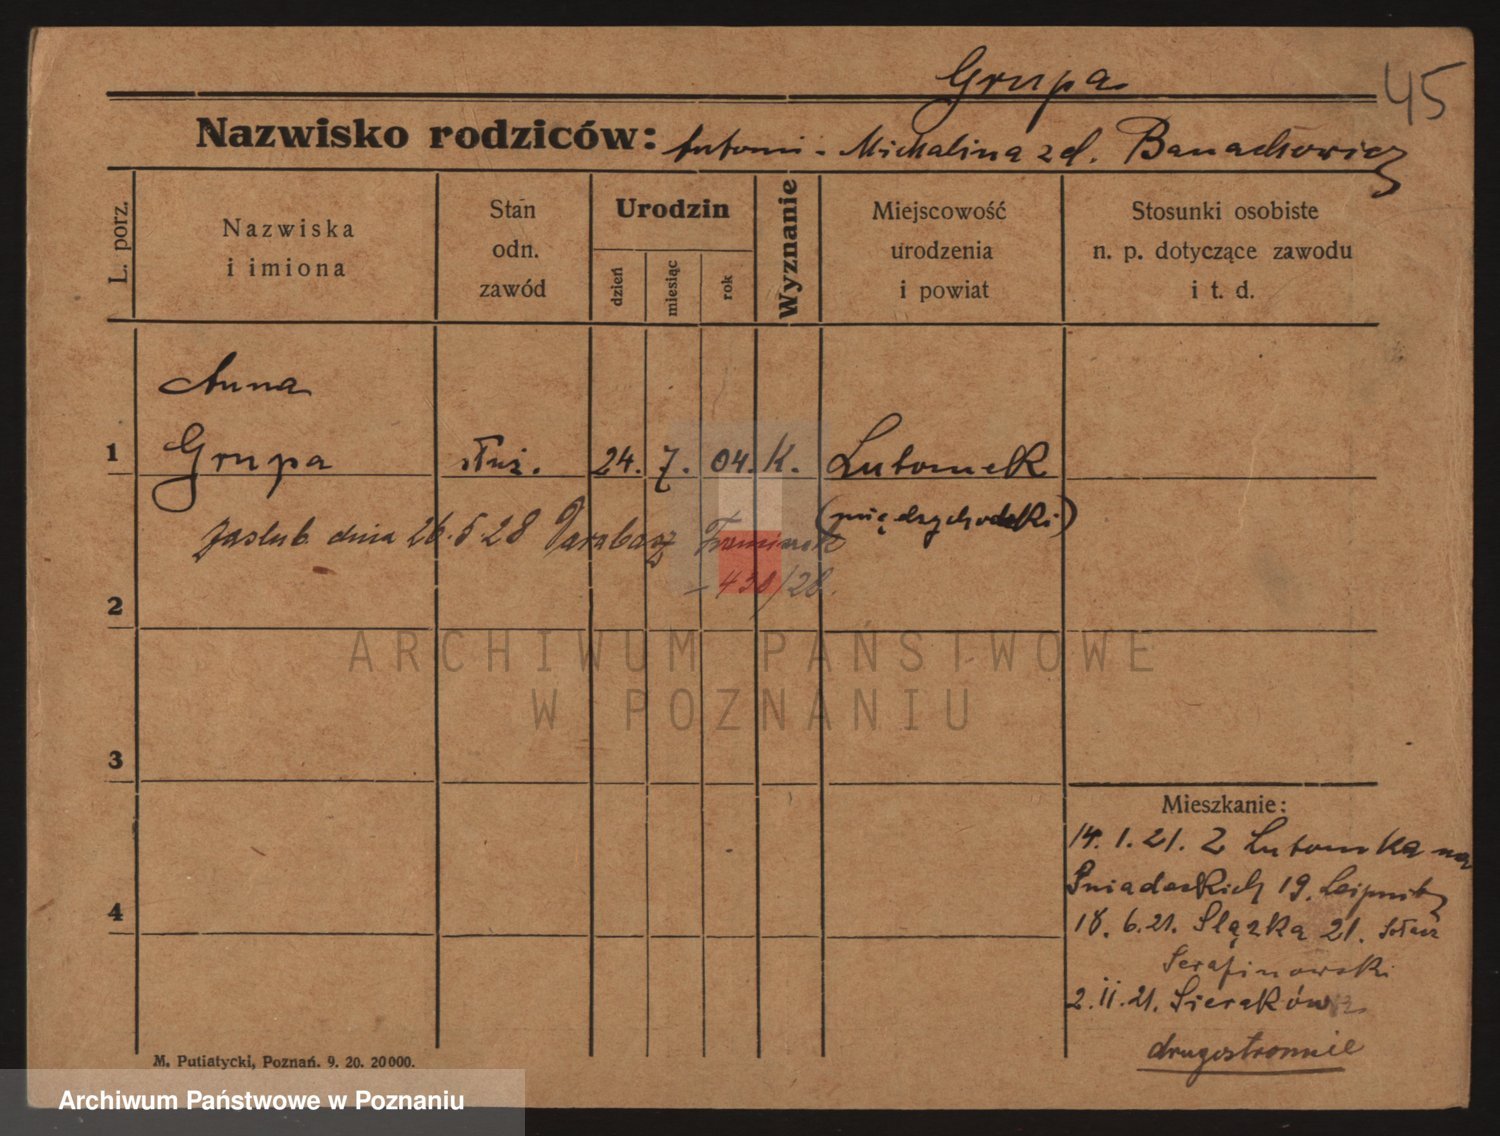 Grupa
45
Nazwisko rodziców: Antoni - Michalina z d. Banachowicz
L. porz.
Nazwiska
i imiona
Stan
odn.
zawód
Urodzin
dzień
miesiąc
rok
Wyznanie
Miejscowość
urodzenia
i powiat
Stosunki osobiste
n. p. dotyczące zawodu
i t. d.
Anna
1 Grupa służ. 24. 7. 04. K. Lutomek
(międzychodzki)
zaślub. dnia 26.5.28 Franciszek
438/28.
2
ARCHIWUM PAŃSTWOWE
W POZNANIU
3
Mieszkanie:
14. 1. 21. Z Lutomka na
Śniadeckich 19.
4
18. 6. 21. Śląska 21. Sołacz
Serafinowski
2. II. 21. Sieraków
drugostronnie
M. Putiatycki, Poznań. 9. 20. 20000.
Archiwum Państwowe w Poznaniu